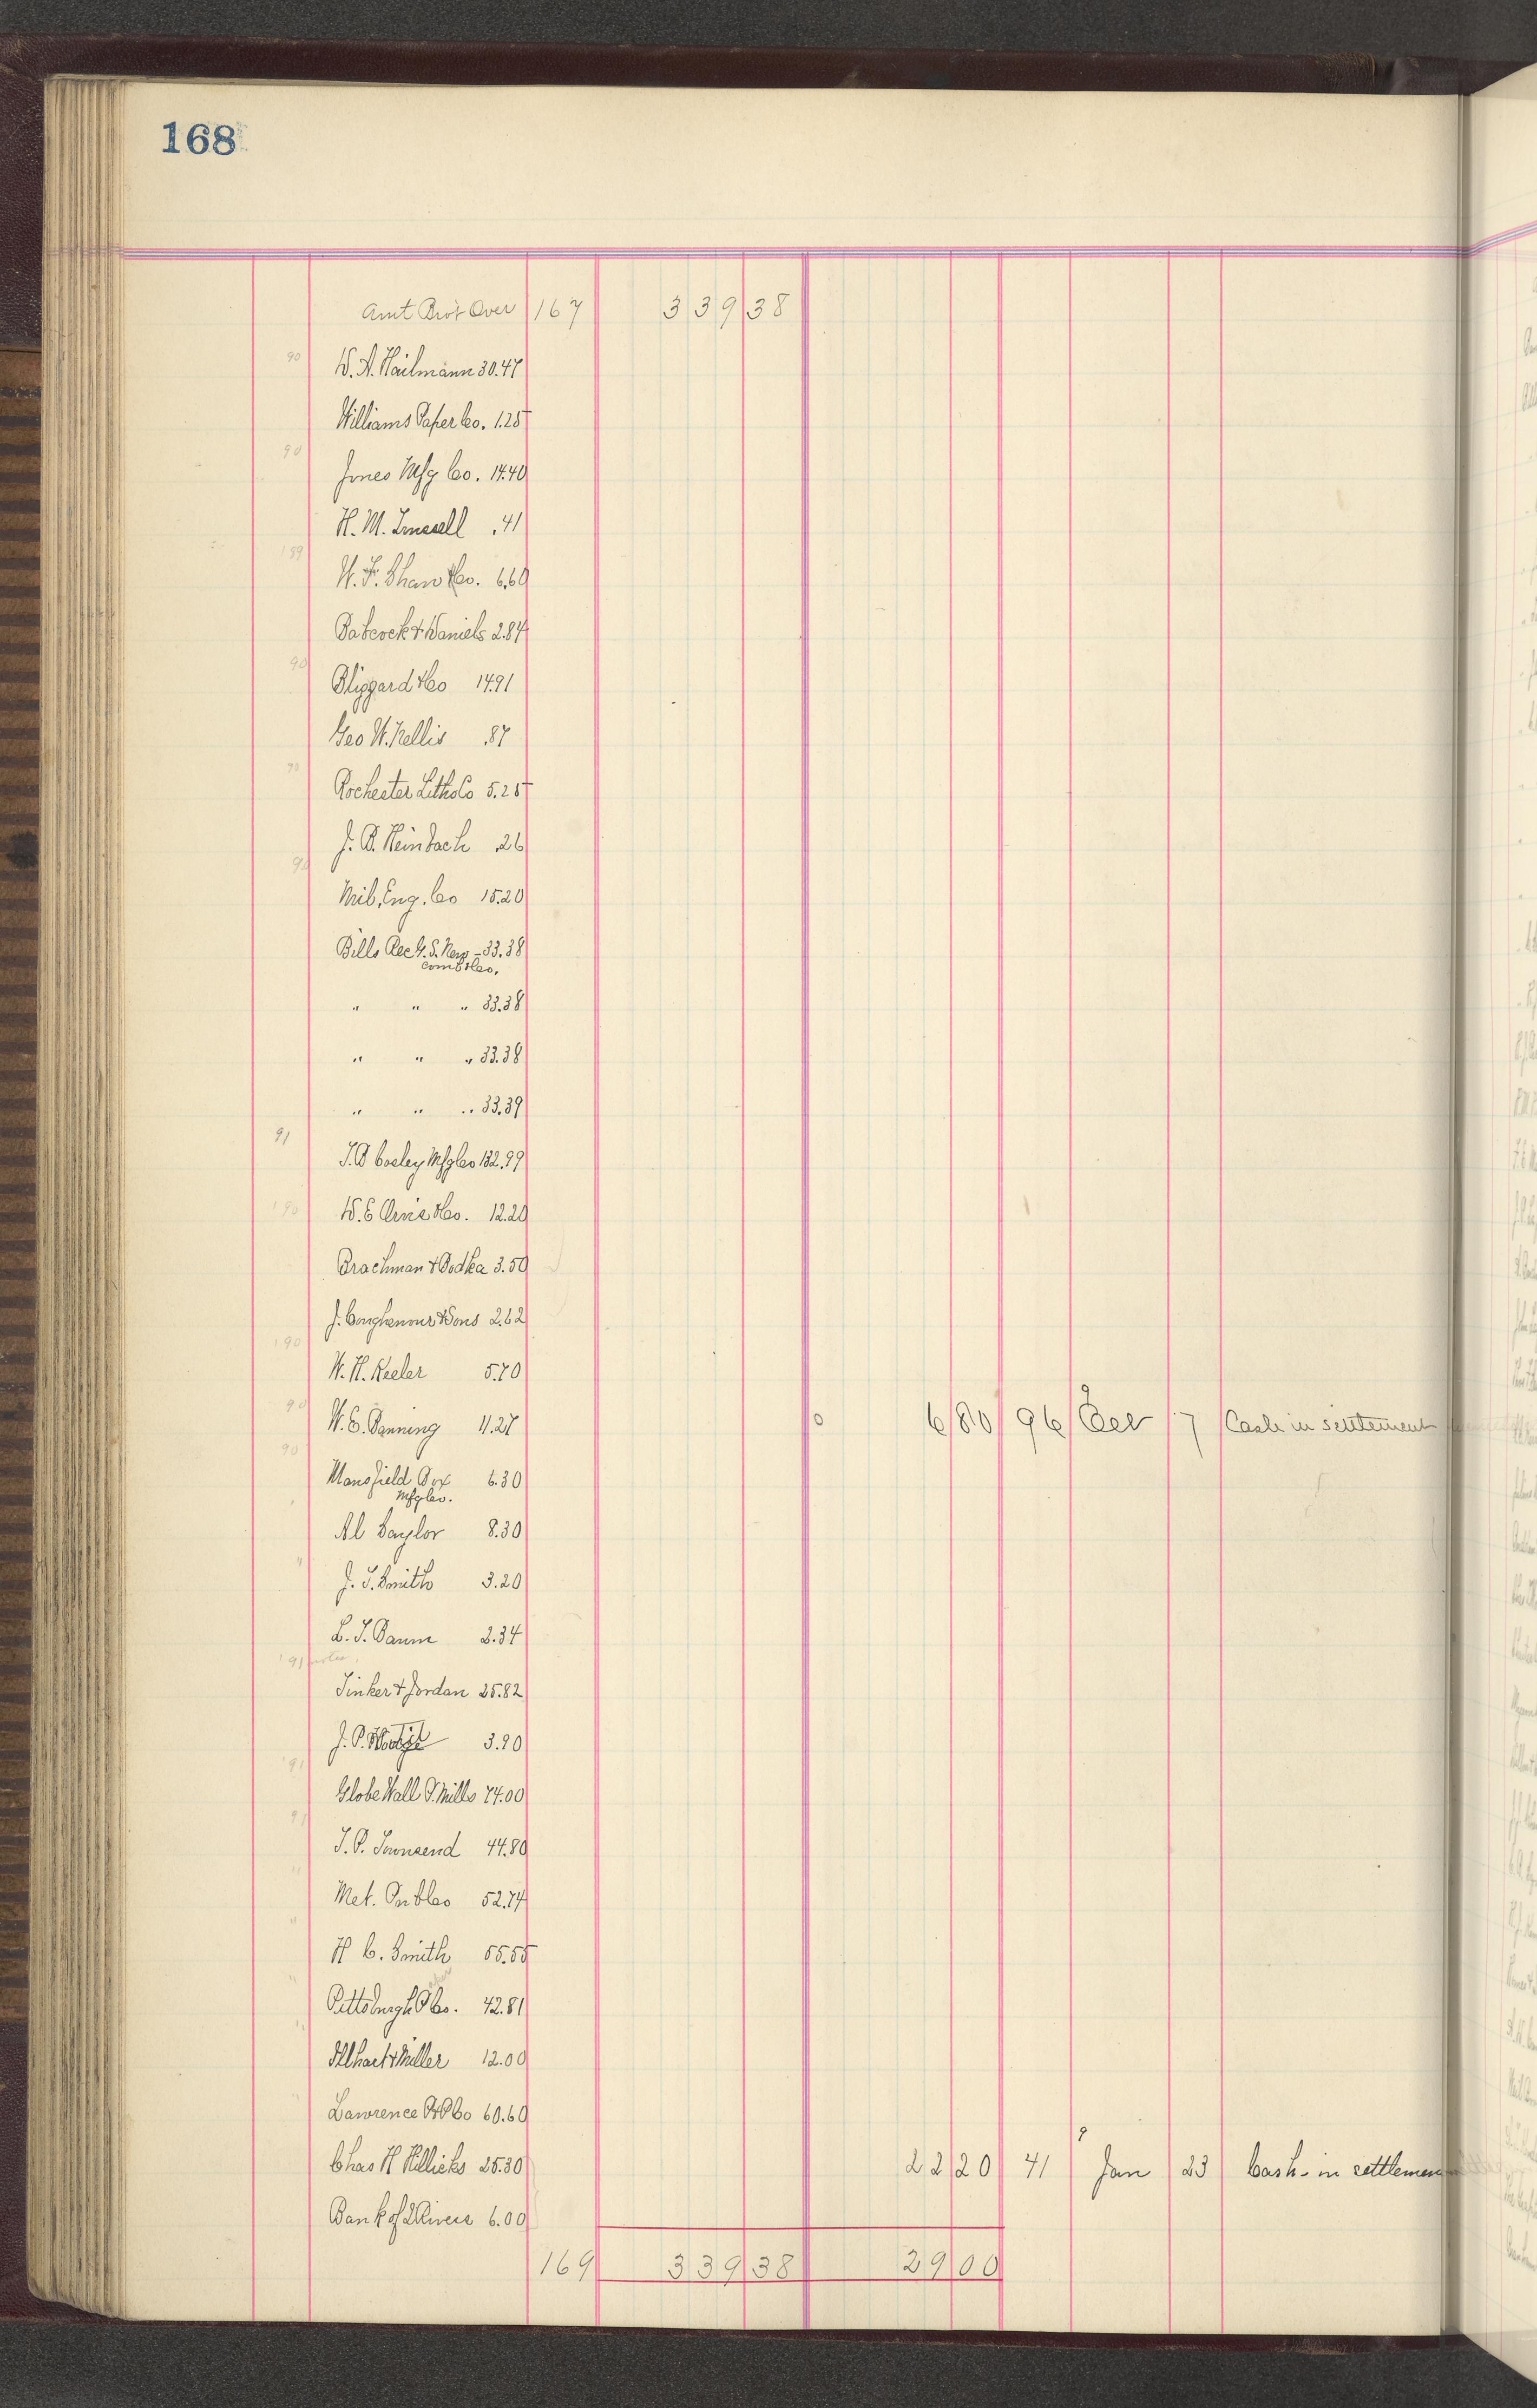 168
Amt Brot Over 167 339 38
90
W. A. Hailmann 30.47
Williams Paper Co. 1.25
90
Jones Mfg Co. 14.40
H. M. .41
189
W. F. Shaw & Co. 6.60
Babcock & Daniels 2.84
90
& Co 14.91
Geo W. Kellis .87
90
Rochester Litho Co 5.25
J. B. Heimbach .26
90
Mil. Eng. Co 15.20
Bills Rec G. S. 33.38
Comb & Co.
" " " 33.38
" " " 33.38
" " " 33.39
91
J. B Cooley Mfg Co 132.99
90
W. E & Co. 12.20
Drachman & Vodka 3.50
J. & Sons 2.62
90
W. H. Keeler 5.70
90
W. E. Banning 11.27 6 80 96 7 Cash in settlement
90
Mansfield Box 6.30
Mfg Co.
Al Saylor 8.30
"
J. S. Smith 3.20
L. J. Baum 2.34
91
Tinker & Jordan 25.82
J. P. 3.90
91
Globe Wall P. Mills 74.00
91
J. P. Townsend 44.80
"
Met. Pub Co 52.74
"
H C. Smith 55.55
"
Pittsburgh P Co. 42.81
& Miller 12.00
Lawrence Co 60.60
Chas H Killicks 25.30 22 20 41 Jan 23 Cash in settlemen
Bank of 2 Rivers 6.00
169 339 38 29 00